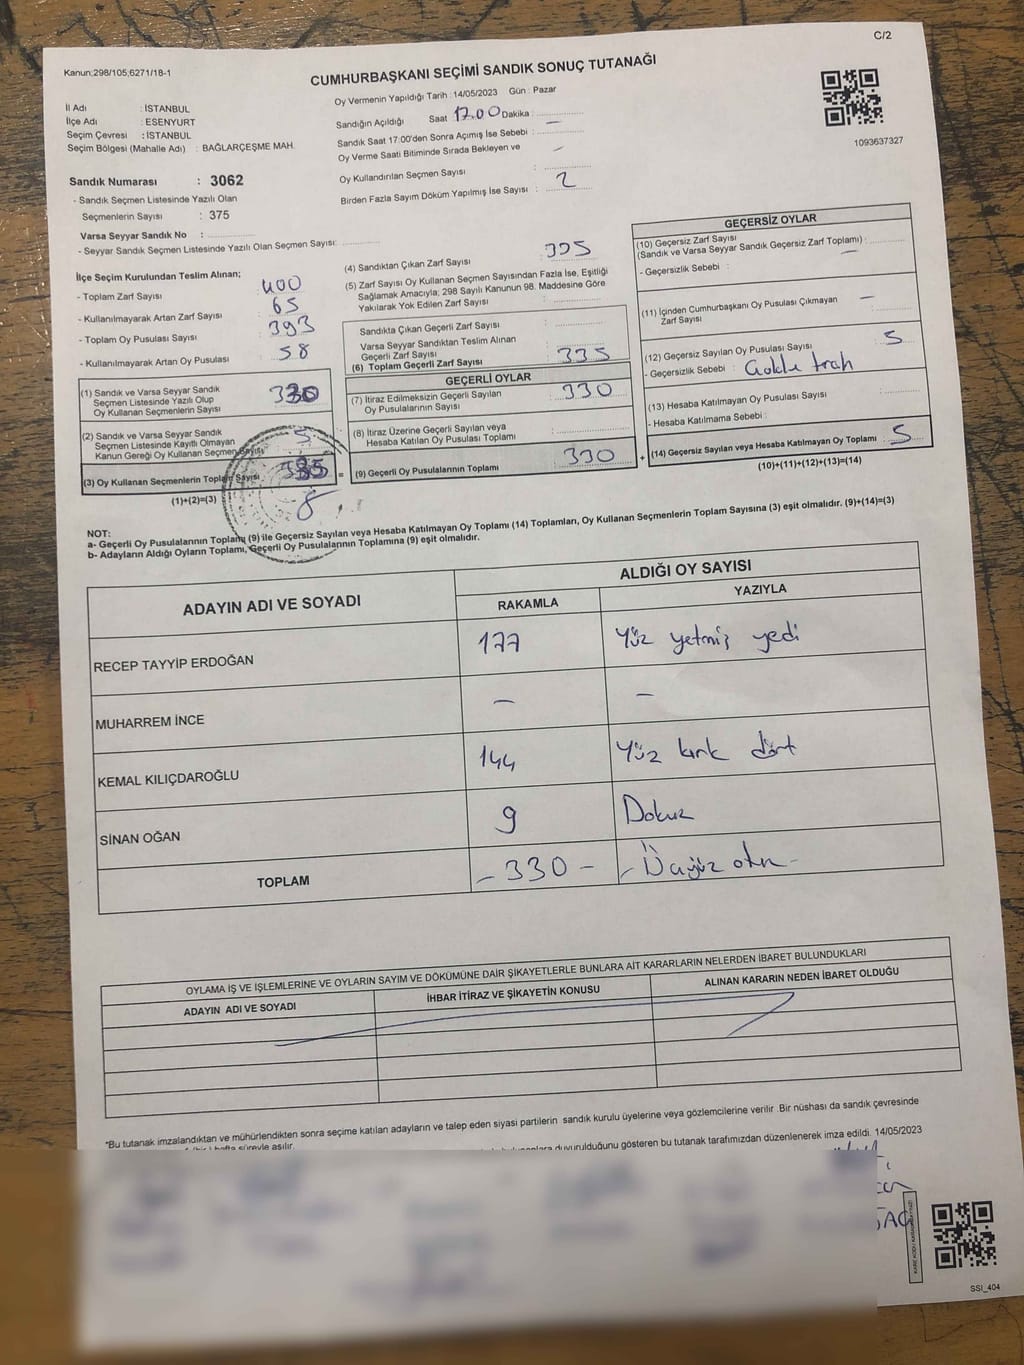 C/2
Kanun;298/105;6271/18-1
CUMHURBAŞKANI SEÇİMİ SANDIK SONUÇ TUTANAĞI
İl Adı : İSTANBUL
İlçe Adı : ESENYURT
Seçim Çevresi : İSTANBUL
Seçim Bölgesi (Mahalle Adı) : BAĞLARÇEŞME MAH.
Oy Vermenin Yapıldığı Tarih : 14/05/2023 Gün : Pazar
Sandığın Açıldığı Saat 17.00 Dakika :
Sandık Saat 17:00'den Sonra Açımış İse Sebebi : —
Oy Verme Saati Bitiminde Sırada Bekleyen ve
Oy Kullandırılan Seçmen Sayısı : —
Birden Fazla Sayım Döküm Yapılmış İse Sayısı : 2
1093637327
Sandık Numarası : 3062
- Sandık Seçmen Listesinde Yazılı Olan
Seçmenlerin Sayısı : 375
Varsa Seyyar Sandık No :
- Seyyar Sandık Seçmen Listesinde Yazılı Olan Seçmen Sayısı:
İlçe Seçim Kurulundan Teslim Alınan;
- Toplam Zarf Sayısı : 400
- Kullanılmayarak Artan Zarf Sayısı : 65
- Toplam Oy Pusulası Sayısı : 393
- Kullanılmayarak Artan Oy Pusulası : 58
(1) Sandık ve Varsa Seyyar Sandık
Seçmen Listesinde Yazılı Olup
Oy Kullanan Seçmenlerin Sayısı 330
(2) Sandık ve Varsa Seyyar Sandık
Seçmen Listesinde Kayıtlı Olmayan
Kanun Gereği Oy Kullanan Seçmen Sayısı 5
(3) Oy Kullanan Seçmenlerin Toplam Sayısı 335 =
(1)+(2)=(3)
(4) Sandıktan Çıkan Zarf Sayısı : 335
(5) Zarf Sayısı Oy Kullanan Seçmen Sayısından Fazla İse, Eşitliği
Sağlamak Amacıyla; 298 Sayılı Kanunun 98. Maddesine Göre
Yakılarak Yok Edilen Zarf Sayısı :
Sandıkta Çıkan Geçerli Zarf Sayısı :
Varsa Seyyar Sandıktan Teslim Alınan
Geçerli Zarf Sayısı :
(6) Toplam Geçerli Zarf Sayısı : 335
GEÇERLİ OYLAR
(7) İtiraz Edilmeksizin Geçerli Sayılan
Oy Pusulalarının Sayısı : 330
(8) İtiraz Üzerine Geçerli Sayılan veya
Hesaba Katılan Oy Pusulası Toplamı :
(9) Geçerli Oy Pusulalarının Toplamı : 330 +
GEÇERSİZ OYLAR
(10) Geçersiz Zarf Sayısı
(Sandık ve Varsa Seyyar Sandık Geçersiz Zarf Toplamı) : —
- Geçersizlik Sebebi :
(11) İçinden Cumhurbaşkanı Oy Pusulası Çıkmayan
Zarf Sayısı : —
(12) Geçersiz Sayılan Oy Pusulası Sayısı : 5
- Geçersizlik Sebebi :
(13) Hesaba Katılmayan Oy Pusulası Sayısı :
- Hesaba Katılmama Sebebi :
(14) Geçersiz Sayılan veya Hesaba Katılmayan Oy Toplamı : 5
(10)+(11)+(12)+(13)=(14)
NOT:
a- Geçerli Oy Pusulalarının Toplamı (9) ile Geçersiz Sayılan veya Hesaba Katılmayan Oy Toplamı (14) Toplamları, Oy Kullanan Seçmenlerin Toplam Sayısına (3) eşit olmalıdır. (9)+(14)=(3)
b- Adayların Aldığı Oyların Toplamı, Geçerli Oy Pusulalarının Toplamına (9) eşit olmalıdır.
ADAYIN ADI VE SOYADI
ALDIĞI OY SAYISI
RAKAMLA YAZIYLA
RECEP TAYYİP ERDOĞAN 177 Yüz yetmiş yedi
MUHARREM İNCE — —
KEMAL KILIÇDAROĞLU 144 Yüz kırk dört
SİNAN OĞAN 9 Dokuz
TOPLAM - 330 -
OYLAMA İŞ VE İŞLEMLERİNE VE OYLARIN SAYIM VE DÖKÜMÜNE DAİR ŞİKAYETLERLE BUNLARA AİT KARARLARIN NELERDEN İBARET BULUNDUKLARI
ADAYIN ADI VE SOYADI
İHBAR İTİRAZ VE ŞİKAYETİN KONUSU
ALINAN KARARIN NEDEN İBARET OLDUĞU
*Bu tutanak imzalandıktan ve mühürlendikten sonra seçime katılan adayların ve talep eden siyasi partilerin sandık kurulu üyelerine veya gözlemcilerine verilir .Bir nüshası da sandık çevresinde
hafta süreyle asılır.
duyurulduğunu gösteren bu tutanak tarafımızdan düzenlenerek imza edildi. 14/05/2023
SSI_404